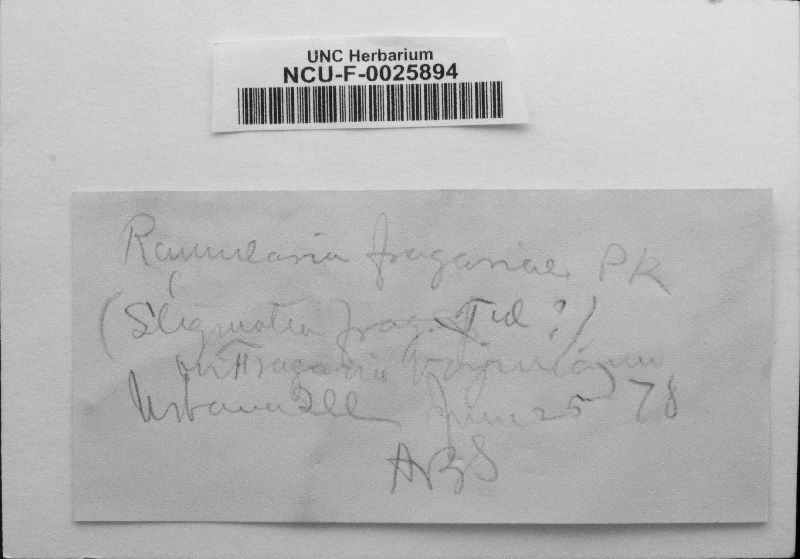 UNC Herbarium
NCU-F-0025894
Ramularia fragariae PK
(Stigmatea frag. Tul ?)
on Fragaria Virginiana
Urbana Ill June 25 78
ABS